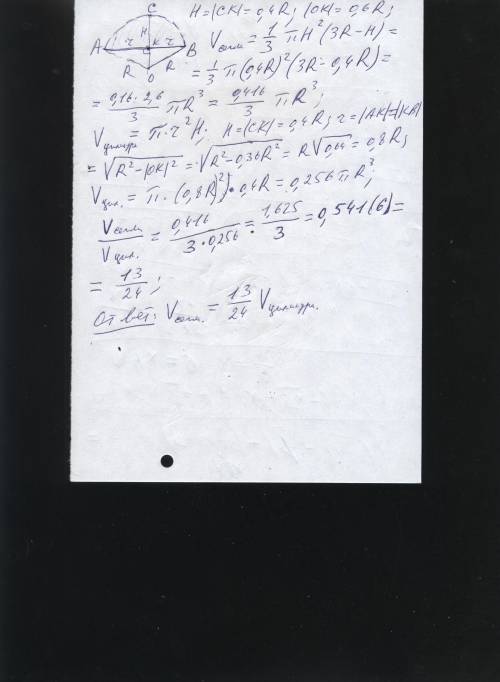 C
H=|CK|=0,4R; |OK|=0,6R;
A r H K r B
R O R
Vсегм.=1/3 πH²(3R-H)=
=1/3 π(0,4R)²(3R-0,4R)=
=0,16·2,6/3 πR³=0,416/3 πR³;
Vцилиндр=π·r²H; H=|CK|=0,4R; r=|AK|=|KB|
=√R²-|OK|²=√R²-0,36R²=R√0,64=0,8R;
Vцил.=π·(0,8R)²·0,4R=0,256πR³;
Vсегм./Vцил.=0,416/3·0,256=1,625/3=0,541(6)=
=13/24;
Ответ: Vсегм.=13/24 Vцилиндр.